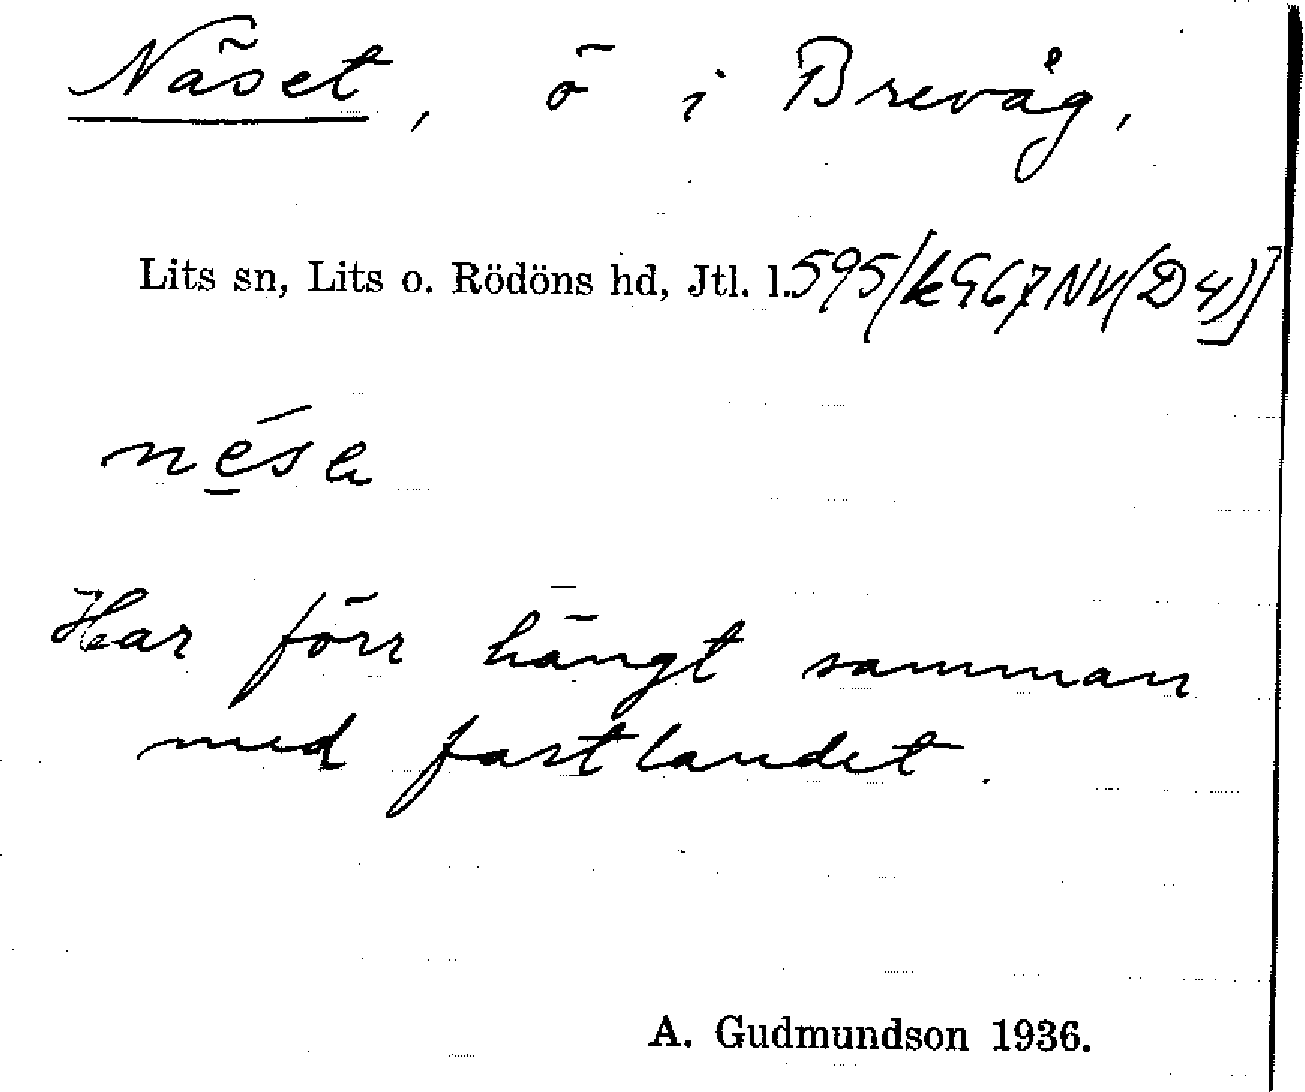 Näset, ö i Brevåg,
Lits sn, Lits o. Rödöns hd, Jtl. l. 595/k
Har förr hängt samman
med fastlandet.
A. Gudmundson 1936.